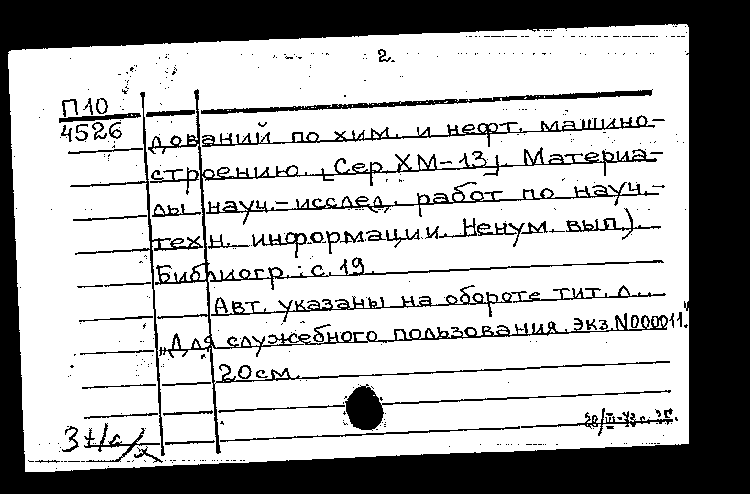 2.
П10
4526
дований по хим. и нефт. машино-
строению. [Сер ХМ-13]. Материа-
лы науч.-исслед. работ по науч.-
техн. информации. Ненум. вып.).
Библиогр.: с. 19.
Авт. указаны на обороте тит. л..
"Для служебного пользования. Экз. N000011."
20 см.